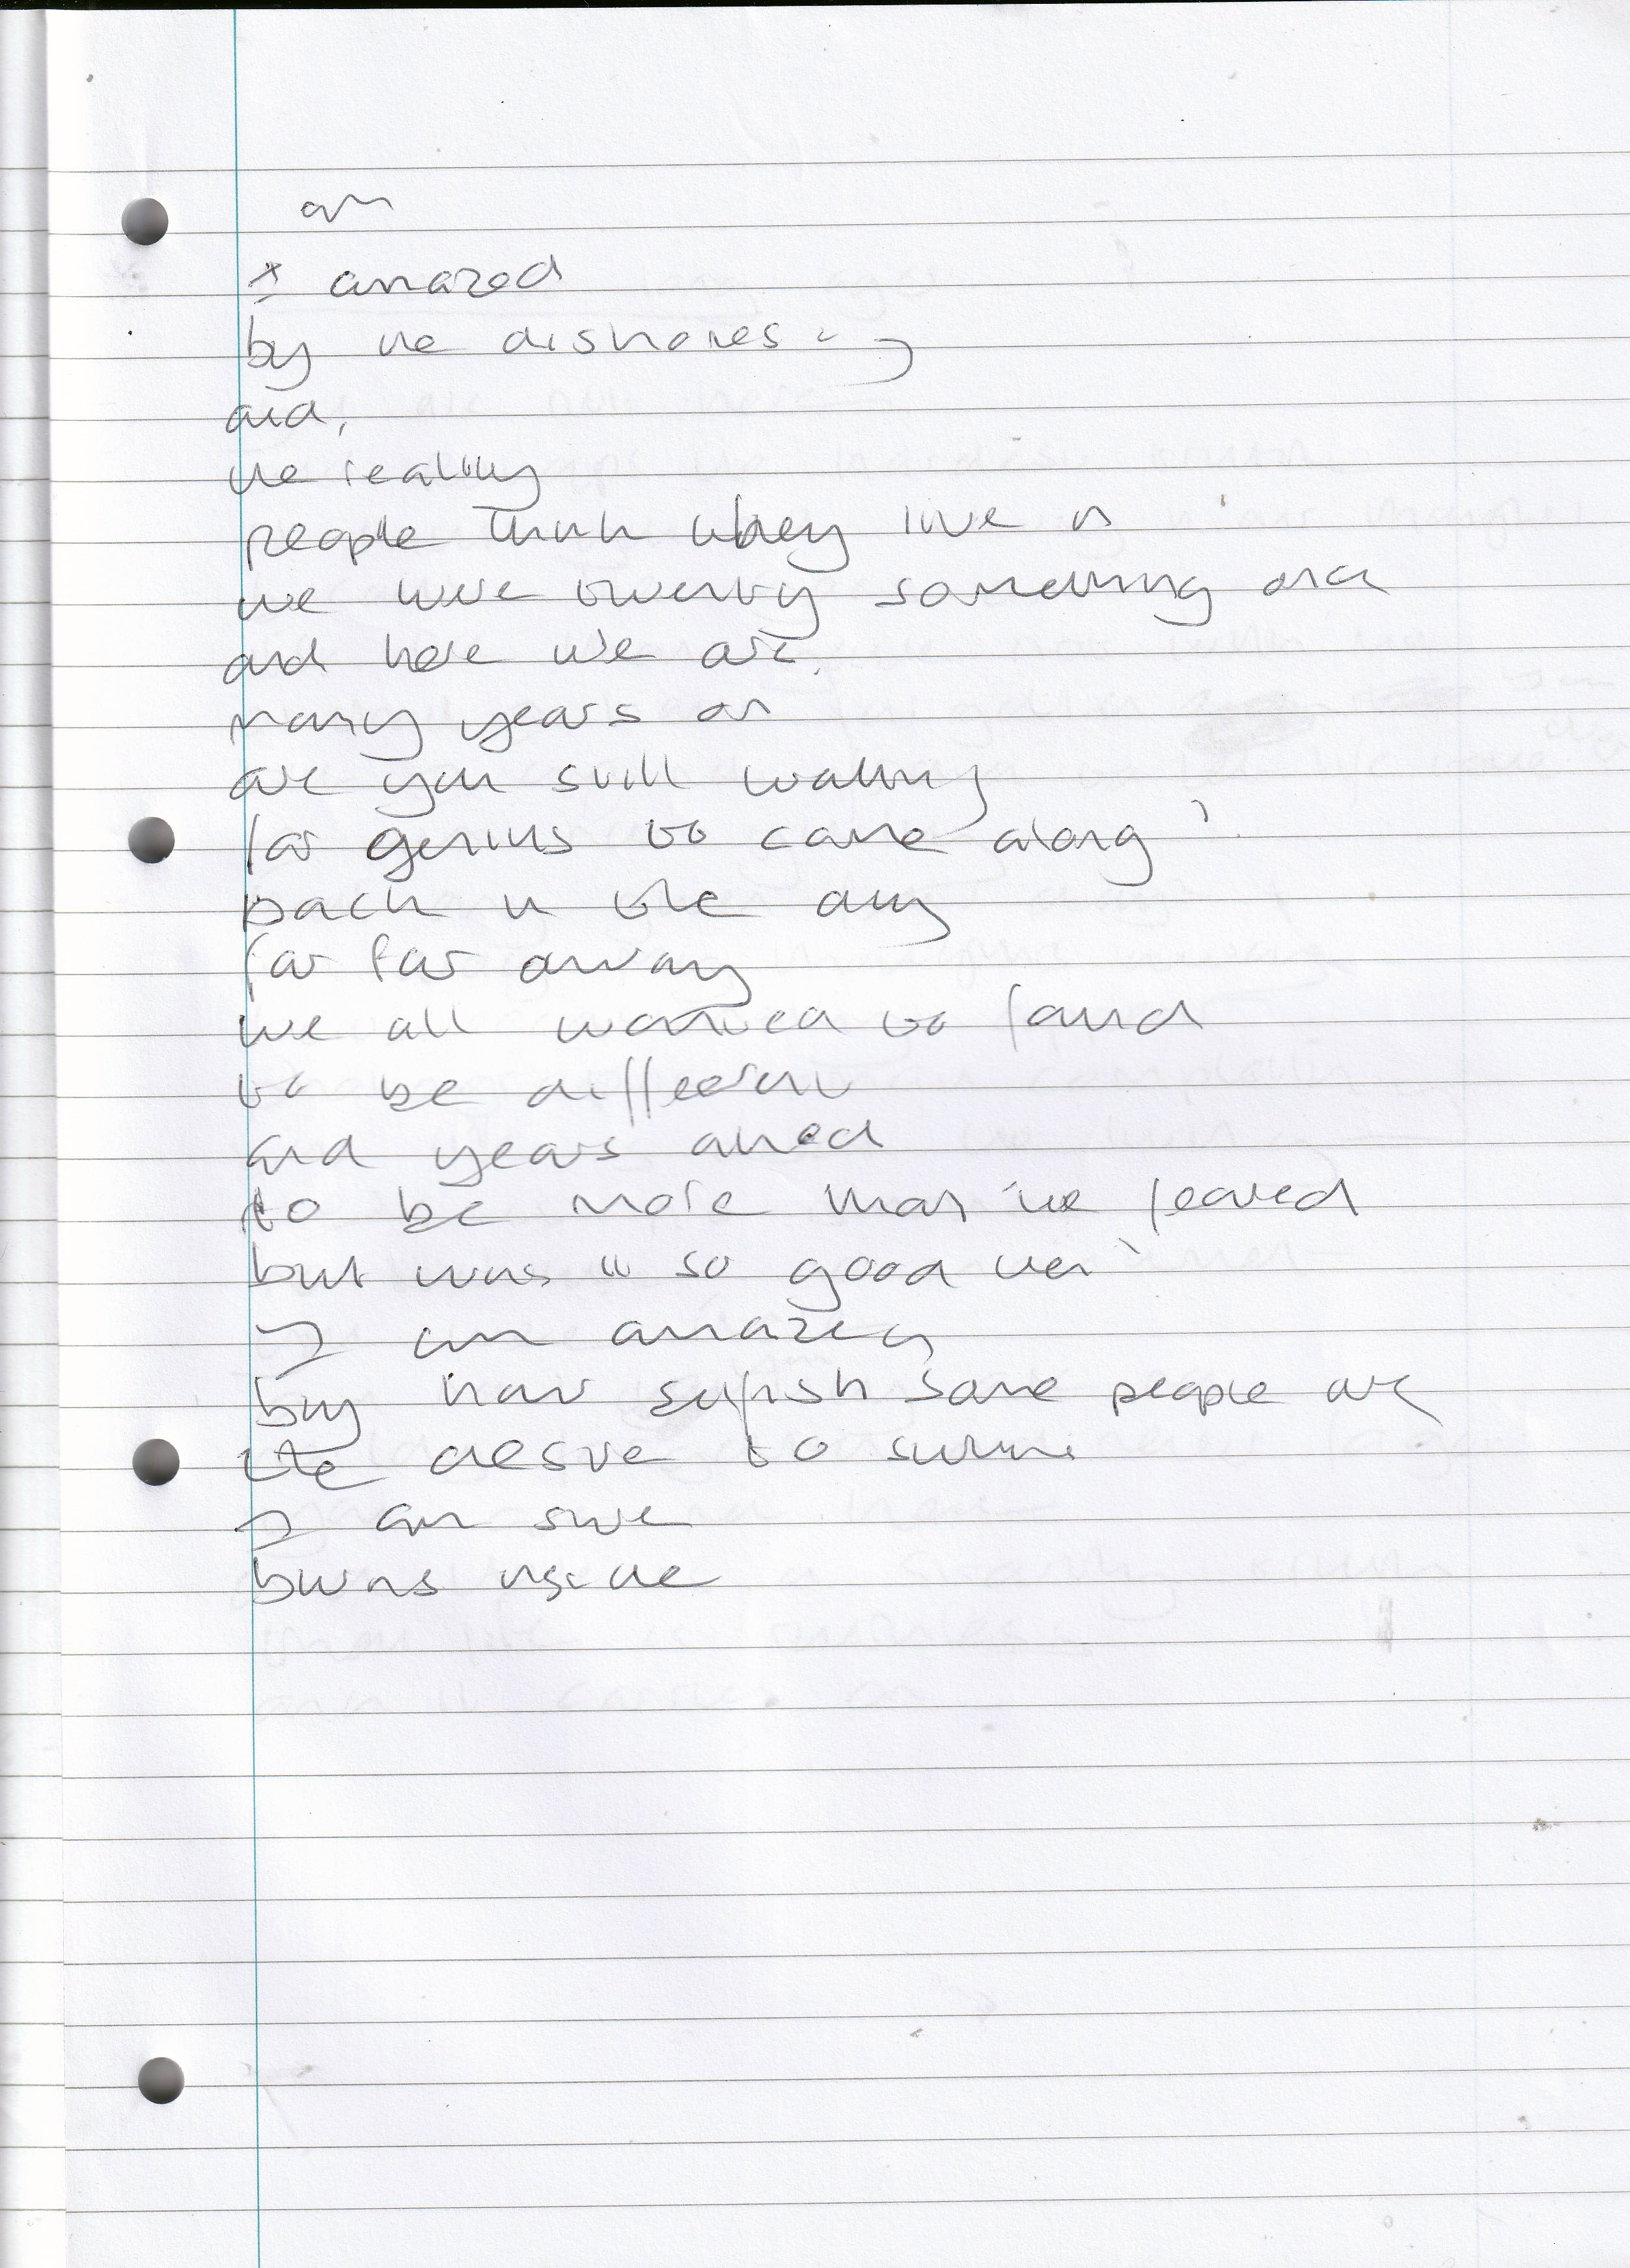 am
I amazed
by the dishonesty
and,
the reality
people think they live in
we were twenty something once
and here we are.
many years on
are you still waiting
for genius to come along?
back in the day
far far away
we all wanted to
to be different
and years ahed
to be more than we feared
but was it so good then?
I am amazed
by how selfish some people are
the desire to survive
I am sure
burns inside